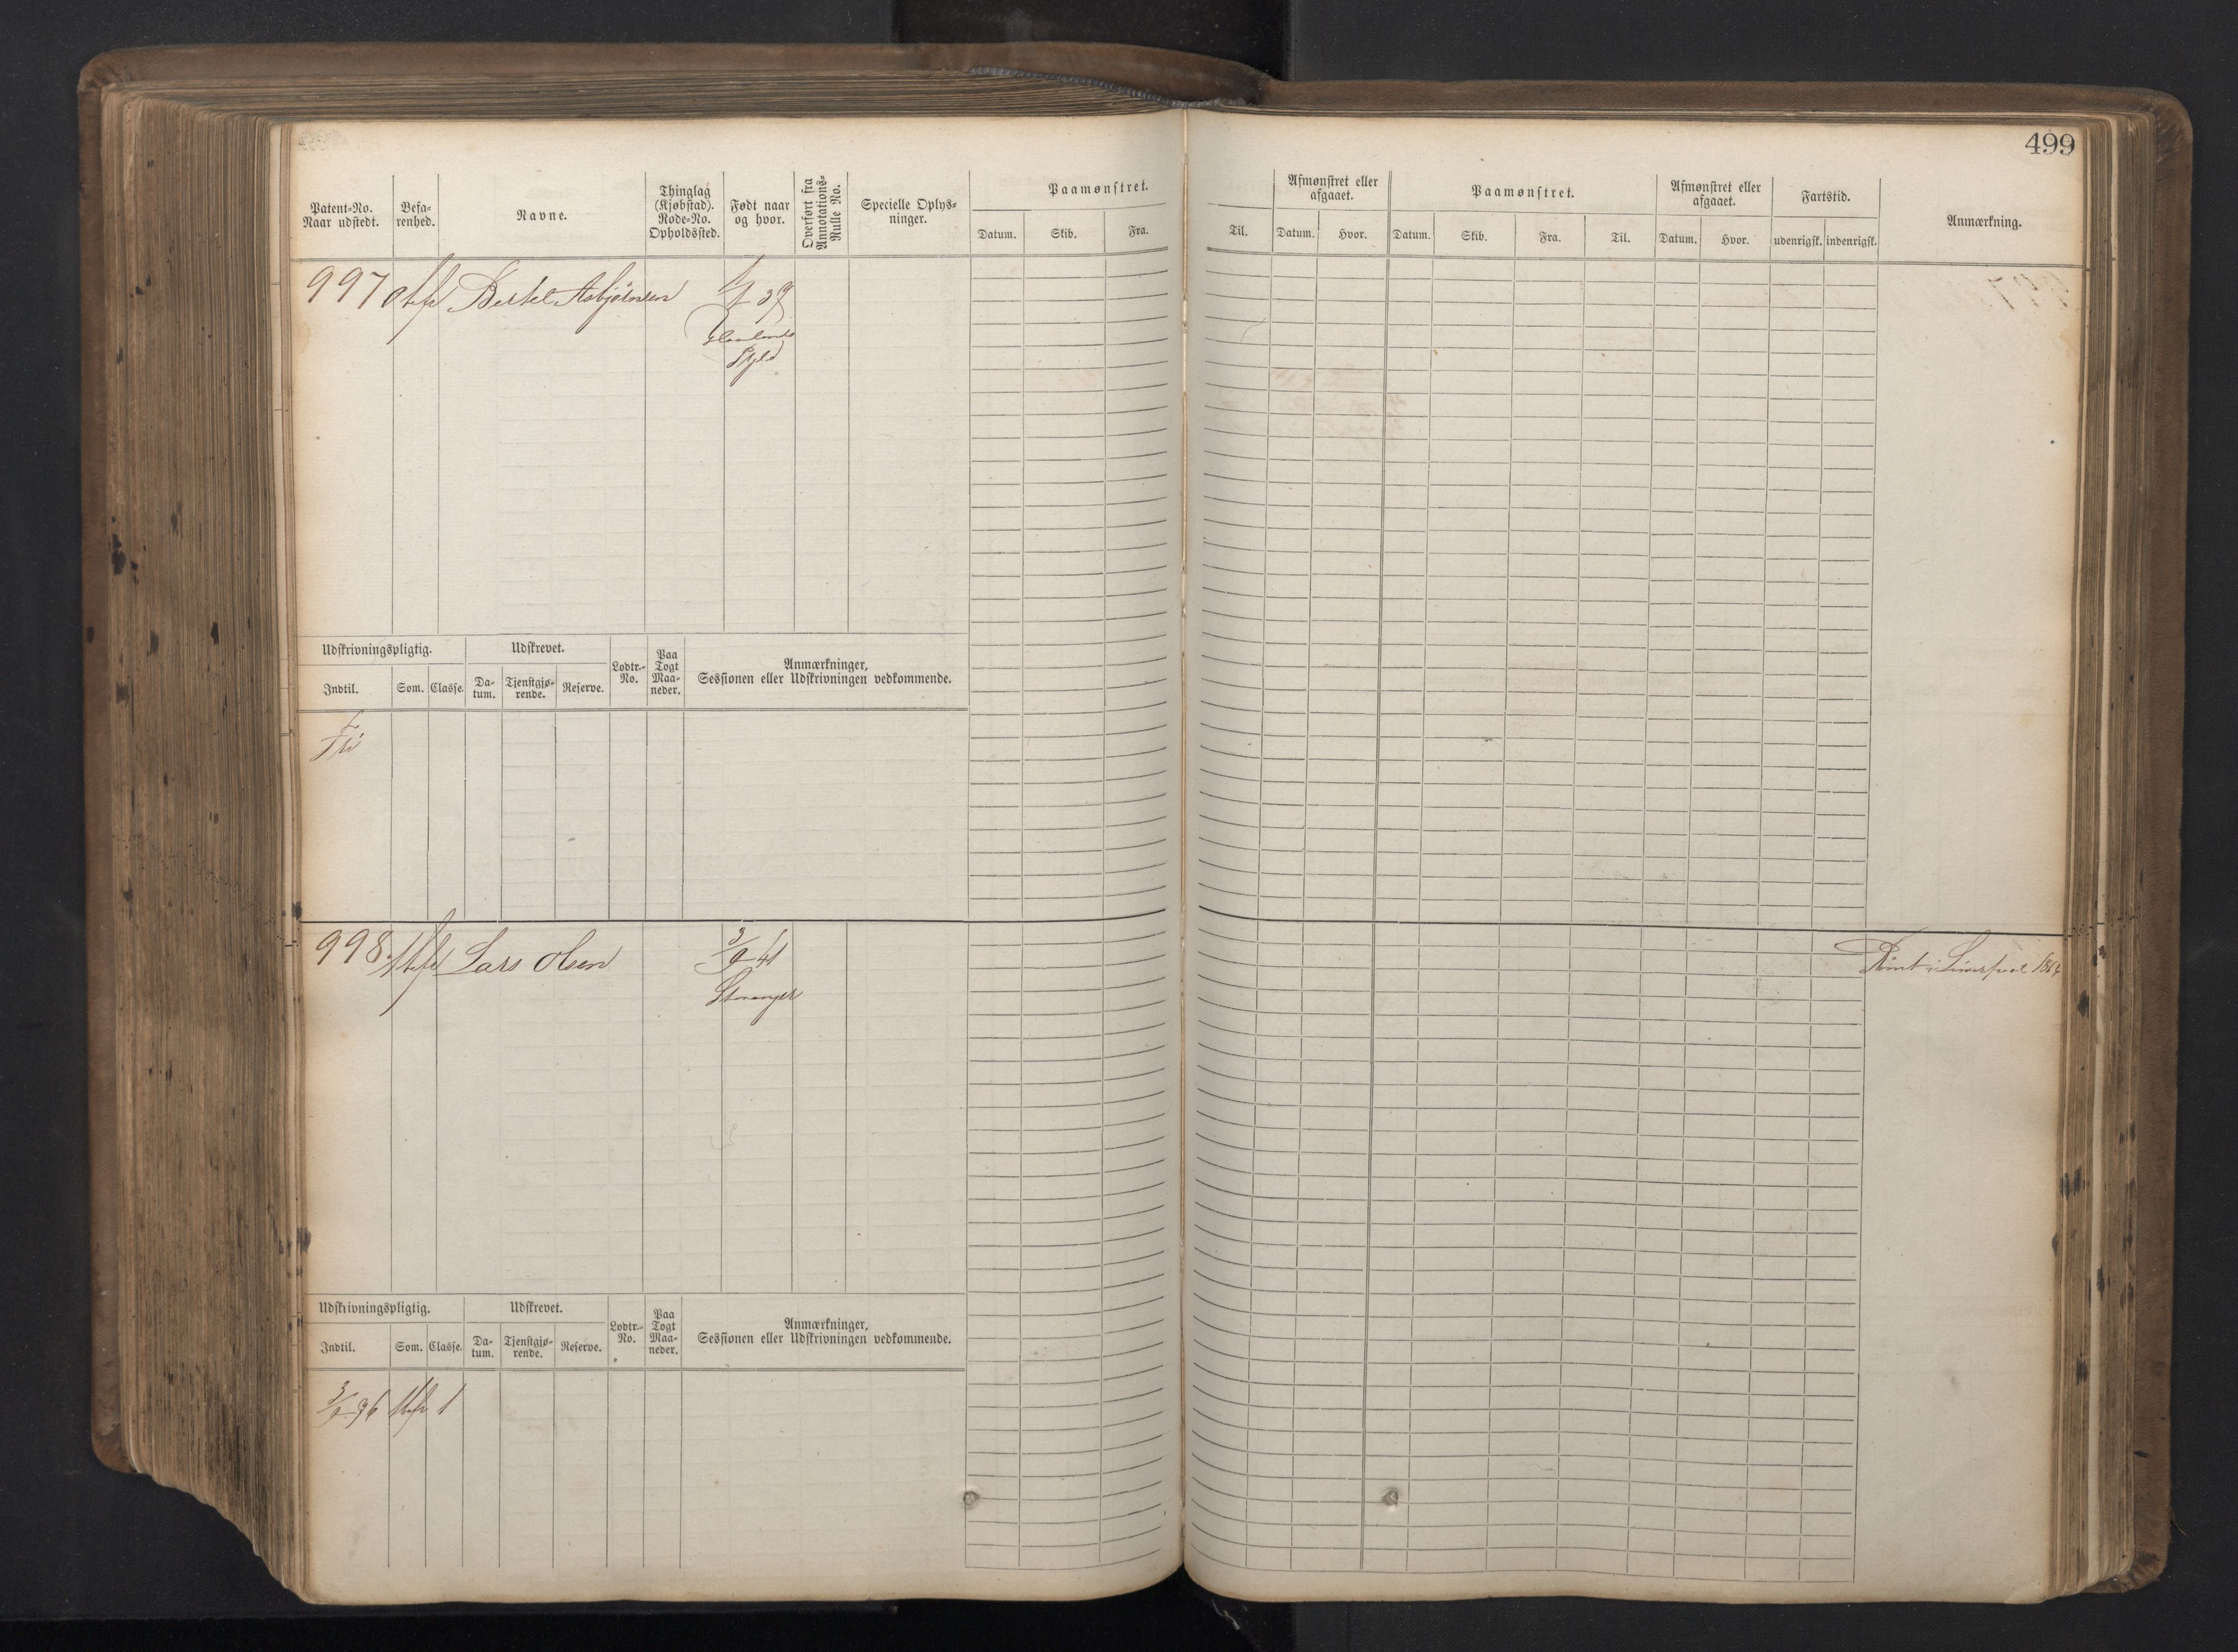 499
Patent-No.
Naar udstedt.
Befa-
renhed.
Navne.
Thinglag
(Kjøbstad).
Rode-No.
Opholdssted.
Født naar
og hvor.
Overført fra
Annotations-
Rulle No.
Specielle Oplys-
ninger.
Paamønstret.
Datum. Skib. Fra.
Til.
Afmønstret eller
afgaaet.
Datum. Hvor.
Paamønstret.
Datum. Skib. Fra. Til.
Afmønstret eller
afgaaet.
Datum. Hvor.
Fartstid.
udenrigsk. indenrigsk.
Anmærkning.
997 Bertel Asbjørnsen
Udskrivningspligtig.
Indtil. Som. Classe.
Udskrevet.
Da-
tum.
Tjenstgjø-
rende.
Reserve.
Lodtr.-
No.
Paa
Togt
Maa-
neder.
Anmærkninger,
Sessionen eller Udskrivningen vedkommende.
Fri
998 Lars Olsen 3/9 41
Stavanger
Rømt i Liverpool 1864
Udskrivningspligtig.
Indtil. Som. Classe.
Udskrevet.
Da-
tum.
Tjenstgjø-
rende.
Reserve.
Lodtr.-
No.
Paa
Togt
Maa-
neder.
Anmærkninger,
Sessionen eller Udskrivningen vedkommende.
1